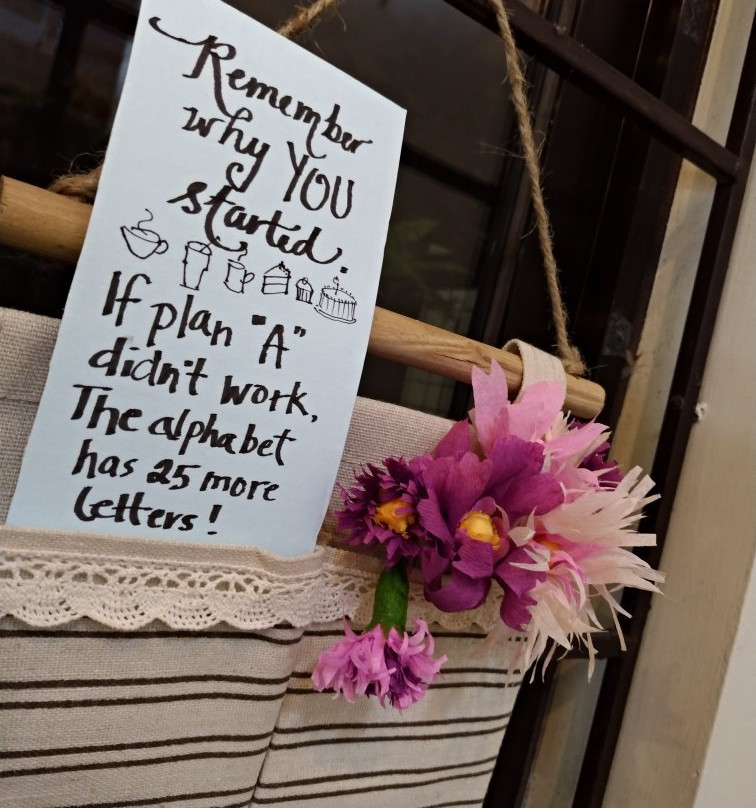 Remember
why YOU
started.
If plan "A"
didn't work,
The alphabet
has 25 more
letters!